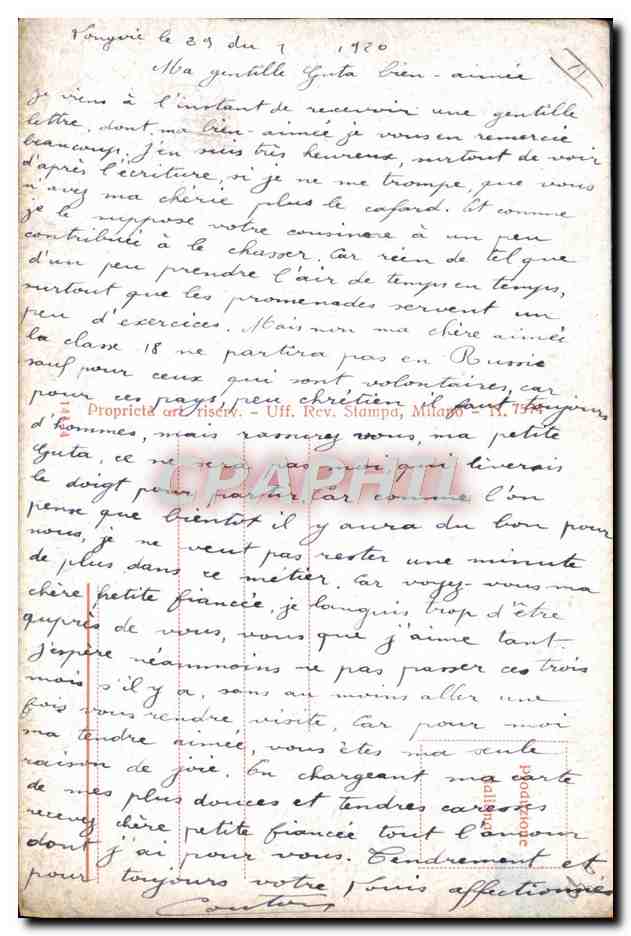 Longvic le 29 du 1 1920
11
Ma gentille Guta bien-aimée
Je viens à l'instant de recevoir une gentille
lettre, dont ma bien-aimée je vous en remercie
beaucoup. J'en suis très heureux, surtout de voir
d'après l'écriture, si je ne me trompe, que vous
n'avez ma chérie plus le cafard. Et comme
je le suppose votre cousinere à un peu
contribuée à le chasser. Car réen de tel que
d'un peu prendre l'air de temps en temps,
surtout que les promenades servent un
peu d'exercices. Mais non ma chère aimée
la classe 18 ne partira pas en Russie
sauf pour ceux qui sont volontaires, car
pour ces pays, peu chrétien il faut toujours
Proprietà art. riserv. - Uff. Rev. Stampa, Milano - N. 7574
d'hommes, mais rassurez vous, ma petite
Guta, ce ne sera pas moi qui liverais
CPAPHIL
le doigt pour partir. Car comme l'on
pense que bientôt il y aura du bon pour
nous, je ne veut pas rester une minute
de plus dans ce métier. Car voyez-vous ma
chère petite fiancée, je languis trop d'être
auprès de vous, vous que j'aime tant.
J'espère néammoins ne pas passer ces trois
mois s'il y a, sans au moins aller une
fois vous rendre visite, Car pour moi
ma tendre aimée, vous êtes ma seule
raison de joie. En chargeant ma carte
de mes plus douces et tendres caresses
recevez chère petite fiancée tout l'amour
dont j'ai pour vous. Tendrement et
pour toujours votre Louis affectionnés
produzione
italiana